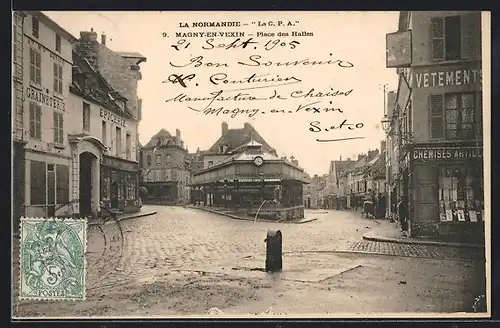 LA NORMANDIE — "La C. P. A."
9. MAGNY-EN-VEXIN — Place des Halles
21 Sept. 1905
Bon Souvenir
Couturien
Manufacture de Chaises
Magny-en-Vexin
S.et O
GRAINETERIE
EPICERIE
VETEMENTS
CHEMISES
5c
POSTES